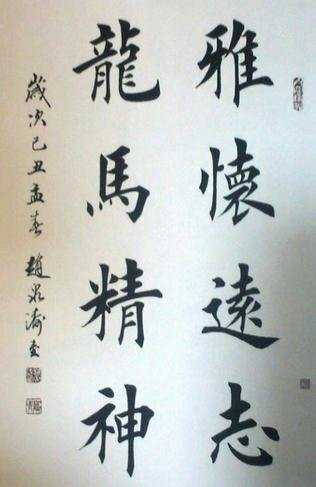 雅懷遠志
龍馬精神
歲次己丑孟春 趙